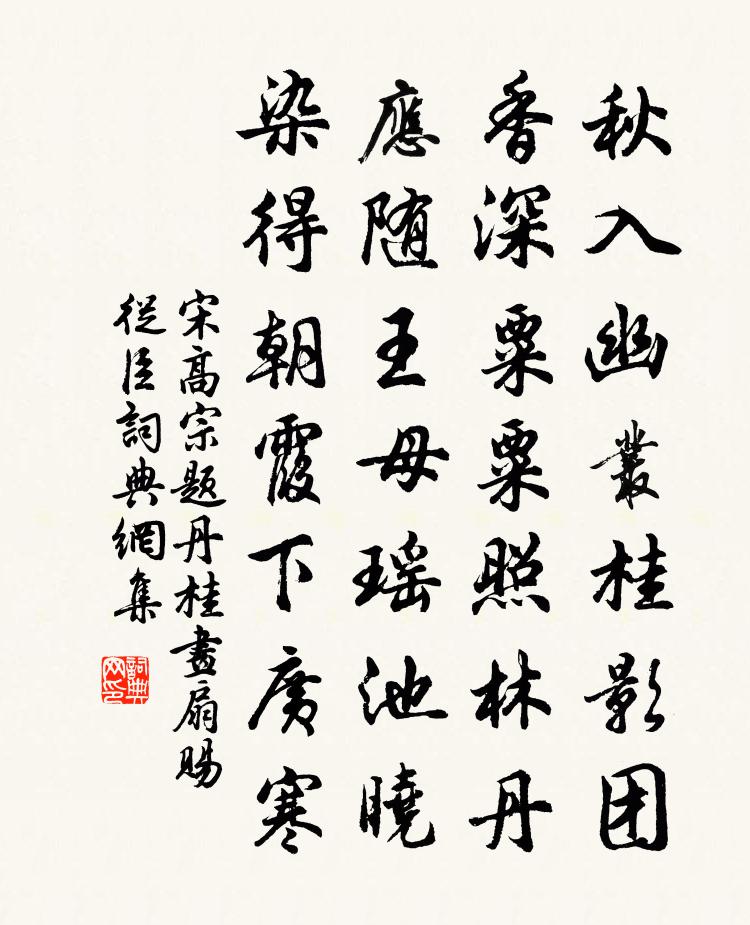 秋入幽叢桂影团
香深粟粟照林丹
應随王母瑶池曉
染得朝霞下廣寒
宋高宗题丹桂畫扇赐
從臣詞典網集
詞典网印